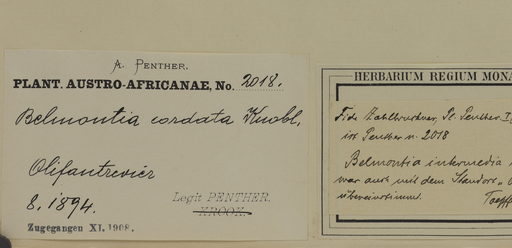 A. PENTHER.
PLANT. AUSTRO-AFRICANAE, No. 2018.
Belmontia cordata Knobl.
Olifantrivier
8. 1894.
Legit PENTHER.
KROOK.
Zugegangen XI. 1908.
HERBARIUM REGIUM MONA
Fide Zahlbruckner, Pl. Penther. I
ist Penther n. 2018
Belmontia intermedia
war auch mit dem Standort "O
übereinstimmt.